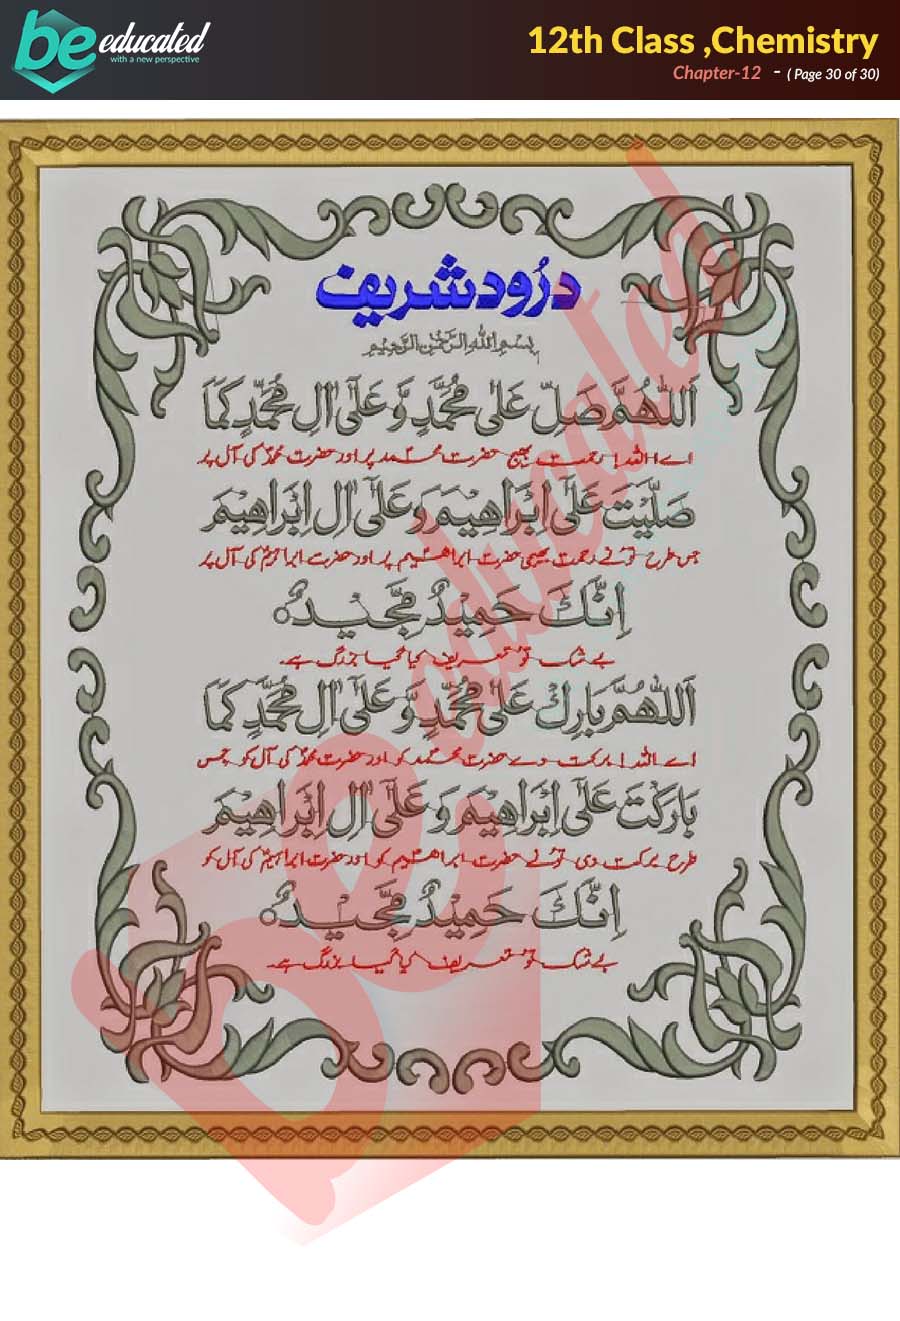 be educated
with a new perspective
12th Class ,Chemistry
Chapter-12 - ( Page 30 of 30)
درُود شریف
بِسْمِ اللهِ الرَّحْمٰنِ الرَّحِيْمِ
اَللّٰهُمَّ صَلِّ عَلٰى مُحَمَّدٍ وَّ عَلٰٓى اٰلِ مُحَمَّدٍ كَمَا
اے اللہ! رحمت بھیج حضرت محمد پر اور حضرت محمدؐ کی آل پر
صَلَّيْتَ عَلٰٓى اِبْرَاهِيْمَ وَ عَلٰٓى اٰلِ اِبْرَاهِيْمَ
جس طرح تونے رحمت بھیجی حضرت ابراھیم پر اور حضرت ابراہیمؑ کی آل پر
اِنَّكَ حَمِيْدٌ مَّجِيْدٌ
بے شک تُو تعریف کیا گیا بزرگ ہے۔
اَللّٰهُمَّ بَارِكْ عَلٰى مُحَمَّدٍ وَّ عَلٰٓى اٰلِ مُحَمَّدٍ كَمَا
اے اللہ! برکت دے حضرت محمد کو اور حضرت محمدؐ کی آل کو جس
بَارَكْتَ عَلٰٓى اِبْرَاهِيْمَ وَ عَلٰٓى اٰلِ اِبْرَاهِيْمَ
طرح برکت دی تونے حضرت ابراھیم کو اور حضرت ابراہیمؑ کی آل کو
اِنَّكَ حَمِيْدٌ مَّجِيْدٌ
بے شک تُو تعریف کیا گیا بزرگ ہے۔
Beeducated